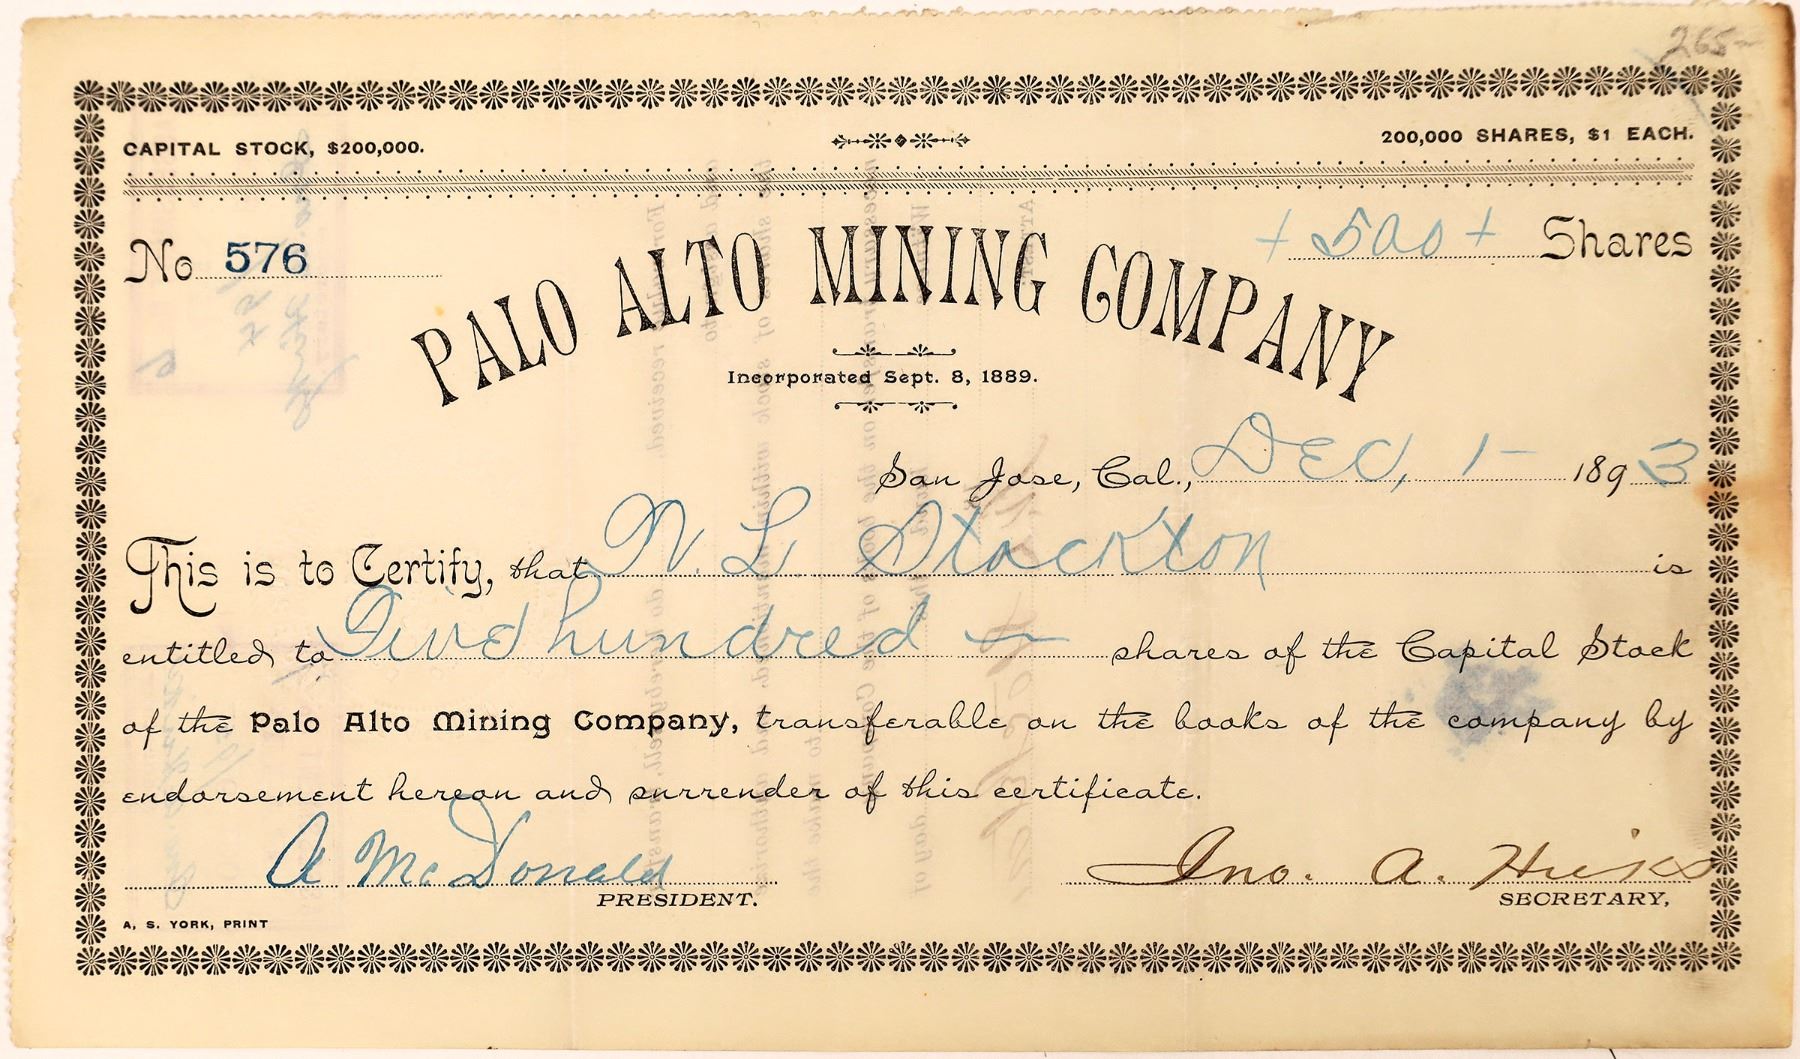 265-
CAPITAL STOCK, $200,000.
200,000 SHARES, $1 EACH.
No 576
+ 500 + Shares
PALO ALTO MINING COMPANY
Incorporated Sept. 8, 1889.
San Jose, Cal., DEC, 1- 1893
This is to Certify, that N. L Stockton is
entitled to Five hundred shares of the Capital Stock
of the Palo Alto Mining Company, transferable on the books of the company by
endorsement hereon and surrender of this certificate.
A McDonald
Jno. A. Hicks
PRESIDENT.
SECRETARY,
A. S. YORK, PRINT